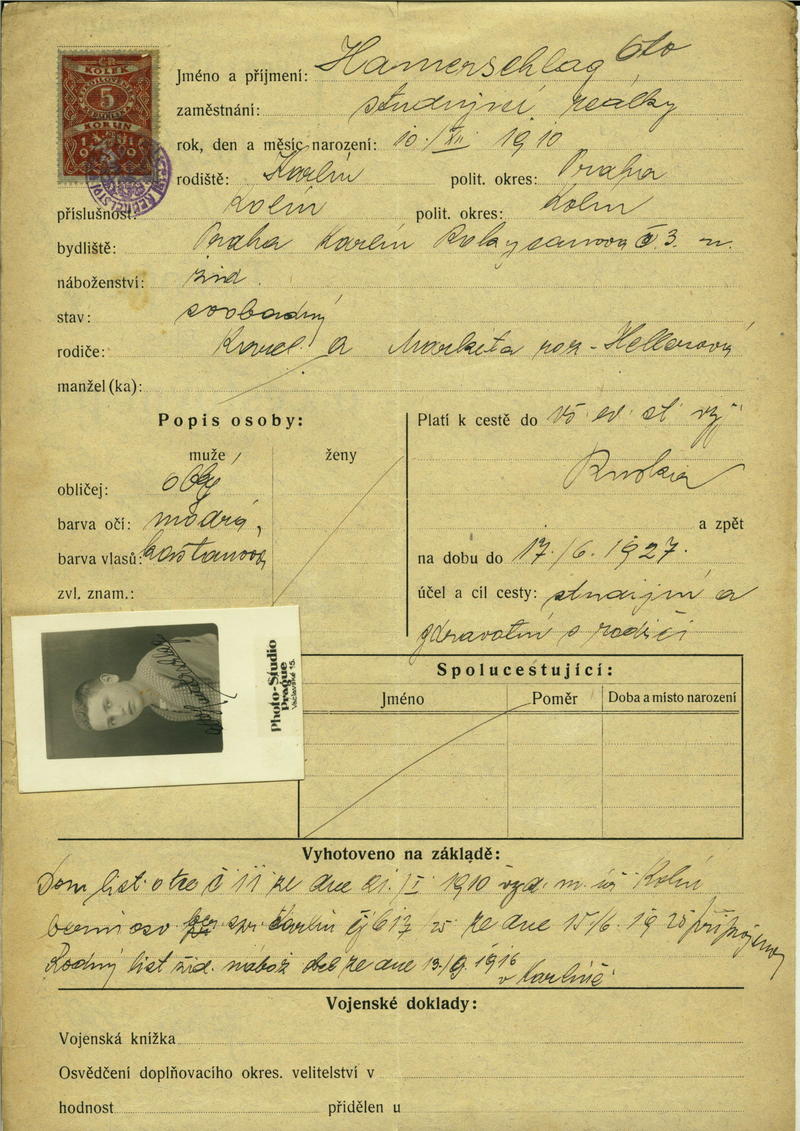 ČR
KOLEK
5
KORUN
Jméno a příjmení: Hamerschlag Oto
zaměstnání: studující reálky
rok, den a měsíc narození: 10./XII. 1910
rodiště: Karlín polit. okres: Praha
příslušnost: Kolín polit. okres: Kolín
bydliště: Praha Karlín č 3.
náboženství: žid.
stav: svobodný
rodiče: Karel a Markéta roz. Hellerová
manžel (ka):
Popis osoby:
muže ženy
obličej: oblý
barva očí: modrá,
barva vlasů: kaštanová
zvl. znam.:
Platí k cestě do vš ev. st. vyj
Ruska
a zpět
na dobu do 17./6. 1927.
účel a cíl cesty: studijní a
zdravotní s rodiči
Photo-Studio
Prague
Václavské 15.
Spolucestující:
Jméno Poměr Doba a místo narození
Vyhotoveno na základě:
Dom list otce č 11 ze dne 21./I. 1910 vyd. m. úř Kolín
spr. Karlín čj 617 ze dne 15/6. 19
Rodný list žid. nábož ze dne 13./9. 1916
v Karlíně
Vojenské doklady:
Vojenská knížka
Osvědčení doplňovacího okres. velitelství v
hodnost přidělen u